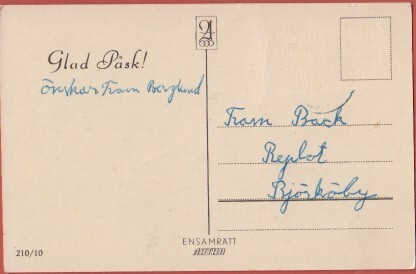 Glad Påsk!
önskar Fram Berglund
Fram Bäck
Replot
Björköby
210/10
ENSAMRÄTT